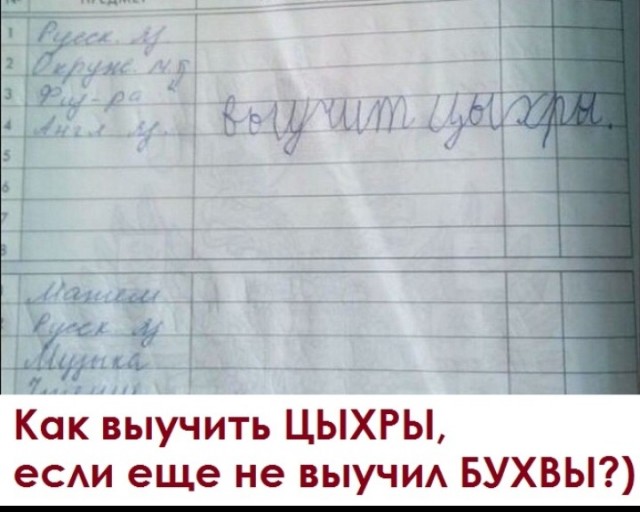 ПРЕДМЕТ
1 Русск. яз
2 Окруж. м.
3 Физ-ра
4 Англ яз.
выучит цыхры.
5
6
7
8
Матем
Русск яз
Музыка
Чтение
Как выучить ЦЫХРЫ,
если еще не выучил БУХВЫ?)